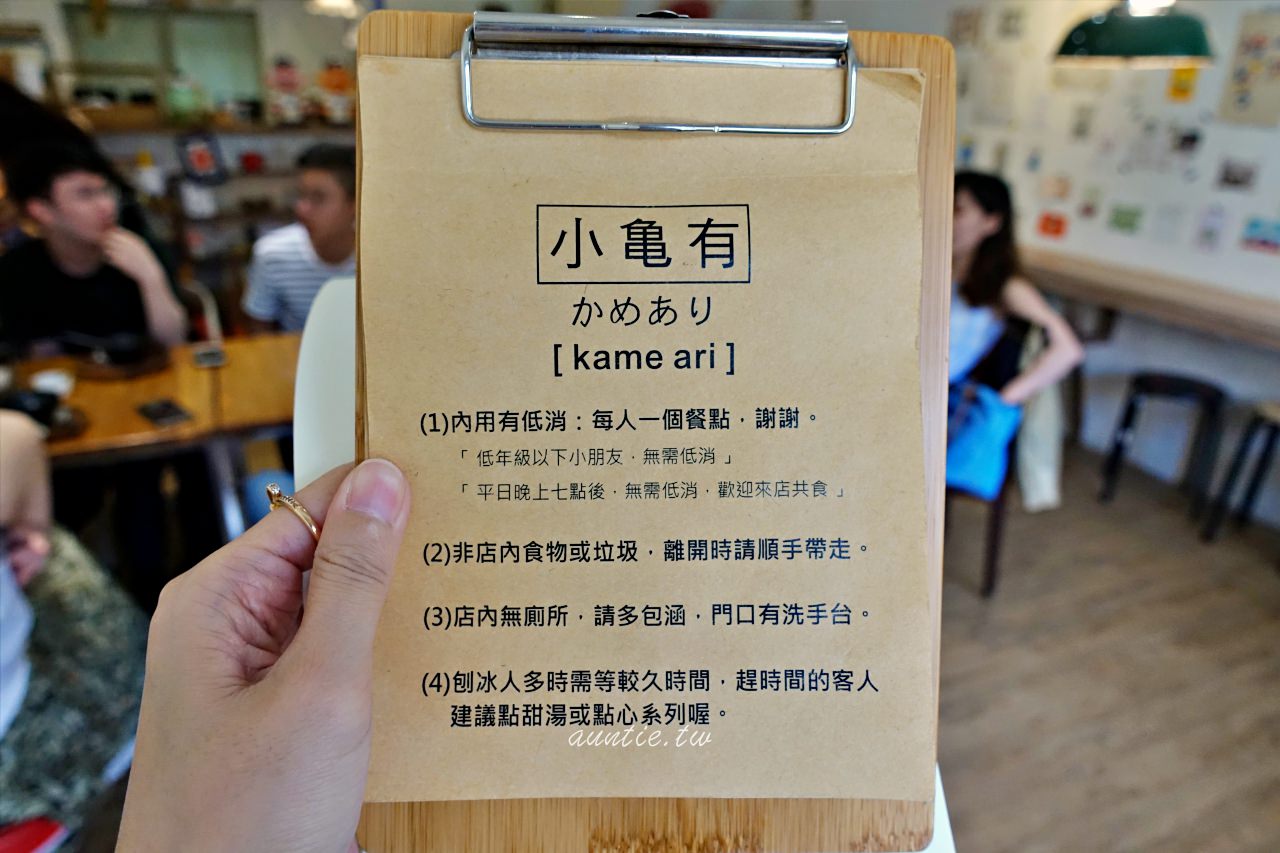 小亀有
かめあり
[ kame ari ]
(1)內用有低消：每人一個餐點，謝謝。
「 低年級以下小朋友，無需低消 」
「 平日晚上七點後，無需低消，歡迎來店共食 」
(2)非店內食物或垃圾，離開時請順手帶走。
(3)店內無廁所，請多包涵，門口有洗手台。
(4)刨冰人多時需等較久時間，趕時間的客人
建議點甜湯或點心系列喔。
auntie.tw